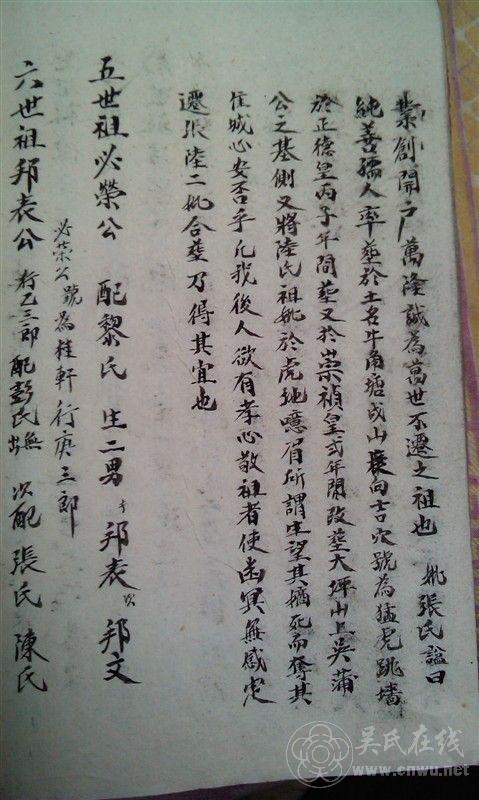 業創開戶萬隆誠為萬世不遷之祖也 妣張氏諡曰
純善孺人率塟於土名牛角塘戌山 向吉穴號為猛虎跳墻
於正德皇丙子年間塟又於崇禎皇弍年間改塟大坪山上吳蒲
公之基側又將陸氏祖妣於虎地噫 所謂生望其 死而奪其
住城心安否乎凡我後人欲有孝心敬祖者使幽冥無感定
遷張陸二妣合塟乃得其宜也
五世祖必榮公 配黎氏 生二男 長邦表 次邦文
必榮公號為桂軒行庚三郎
六世祖邦表公 行乙三郎 配彭氏無 次配張氏 陳氏
吳氏在线
www.cnwu.net